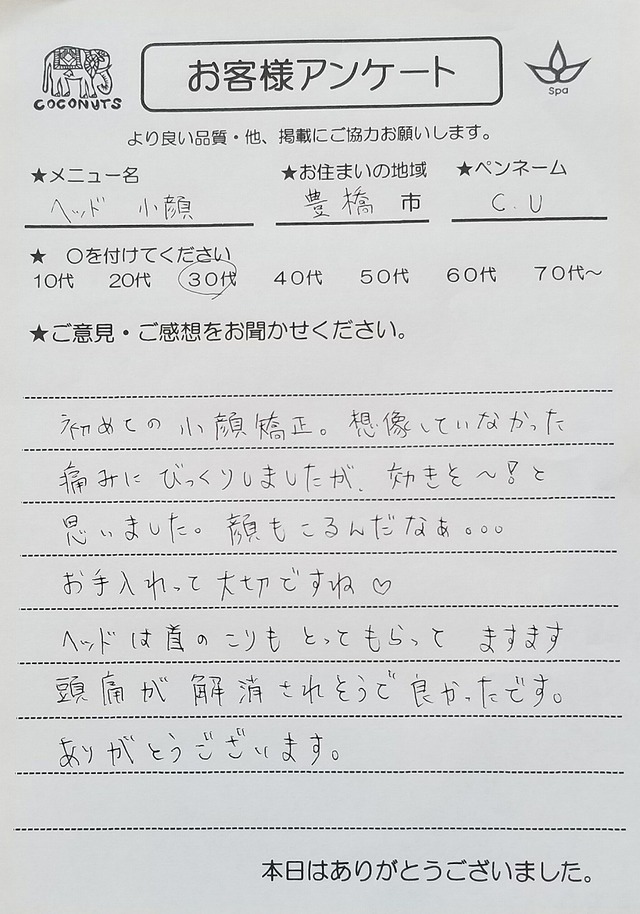 COCONUTS
お客様アンケート
Spa
より良い品質・他、掲載にご協力お願いします。
★メニュー名 ★お住まいの地域 ★ペンネーム
ヘッド 小顔 豊橋 市 C.U
★ 〇を付けてください
10代 20代 30代 40代 50代 60代 70代〜
★ご意見・ご感想をお聞かせください。
初めての小顔矯正。想像していなかった
痛みにびっくりしましたが、効きそ〜!と
思いました。顔もこるんだなぁ。。。
お手入れって大切ですね♡
ヘッドは首のこりもとってもらってますます
頭痛が解消されそうで良かったです。
ありがとうございます。
本日はありがとうございました。